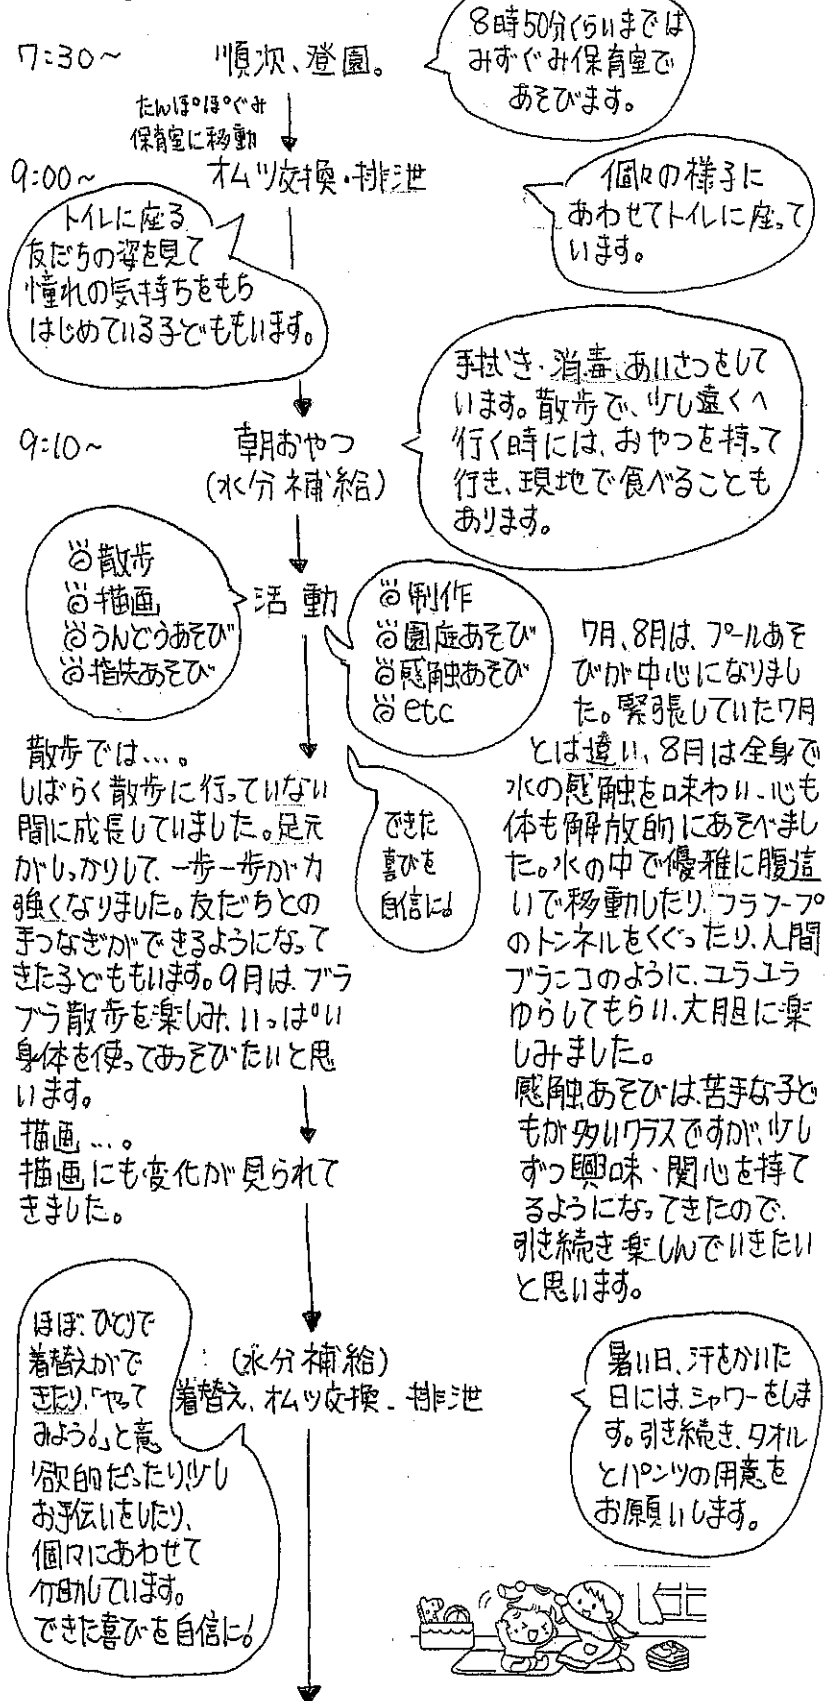 7:30～ 順次、登園。
8時50分くらいまでは
みずぐみ保育室で
あそびます。
たんぽぽぐみ
保育室に移動
9:00～ オムツ交換・排泄
個々の様子に
あわせてトイレに座って
います。
トイレに座る
友だちの姿を見て
憧れの気持ちをもち
はじめている子どももいます。
9:10～ 朝おやつ
(水分補給)
手拭き・消毒、あいさつをして
います。散歩で、少し遠くへ
行く時には、おやつを持って
行き、現地で食べることも
あります。
活動
散歩
描画
うんどうあそび
指先あそび
制作
園庭あそび
感触あそび
etc
できた
喜びを
自信に!
散歩では…。
しばらく散歩に行っていない
間に成長していました。足元
がしっかりして、一歩一歩が力
強くなりました。友だちとの
手つなぎができるようになって
きた子どももいます。9月は、ブラ
ブラ散歩を楽しみ、いっぱい
身体を使ってあそびたいと思
います。
描画…。
描画にも変化が見られて
きました。
7月、8月は、プールあそ
びが中心になりまし
た。緊張していた7月
とは違い、8月は全身で
水の感触を味わい、心も
体も解放的にあそべまし
た。水の中で優雅に腹這
いで移動したり、フラフープ
のトンネルをくぐったり、人間
ブランコのように、ユラユラ
ゆらしてもらい、大胆に楽
しみました。
感触あそびは、苦手な子ど
もが多いクラスですが、少し
ずつ興味・関心を持て
るようになってきたので、
引き続き楽しんでいきたい
と思います。
(水分補給)
着替え、オムツ交換、排泄
ほぼ、ひとりで
着替えがで
きたり、「やって
みよう!」と意
欲的だったり、少し
お手伝いをしたり、
個々にあわせて
介助しています。
できた喜びを自信に!
暑い日、汗をかいた
日には、シャワーをしま
す。引き続き、タオル
とパンツの用意を
お願いします。